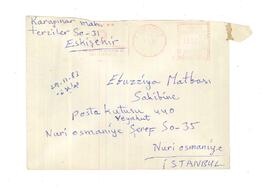 Karapınar mah.
Terziler So-31
Eskişehir
29.11.83
Ebuzziya Matbası
Sahibine
Posta kutusu 440
veyahut
Nuri osmaniye Şeref So-35
Nuri osmaniye
İSTANBUL